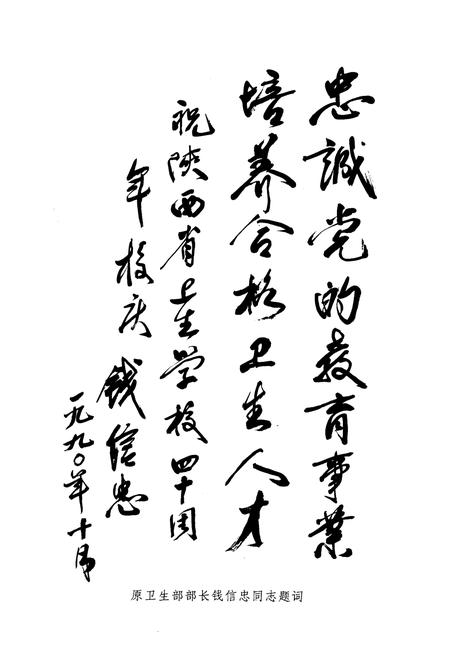 忠誠党的教育事業
培养合格卫生人才
祝陝西省卫生学校四十周
年校庆
钱信忠
一九九〇年十月
原卫生部部长钱信忠同志题词